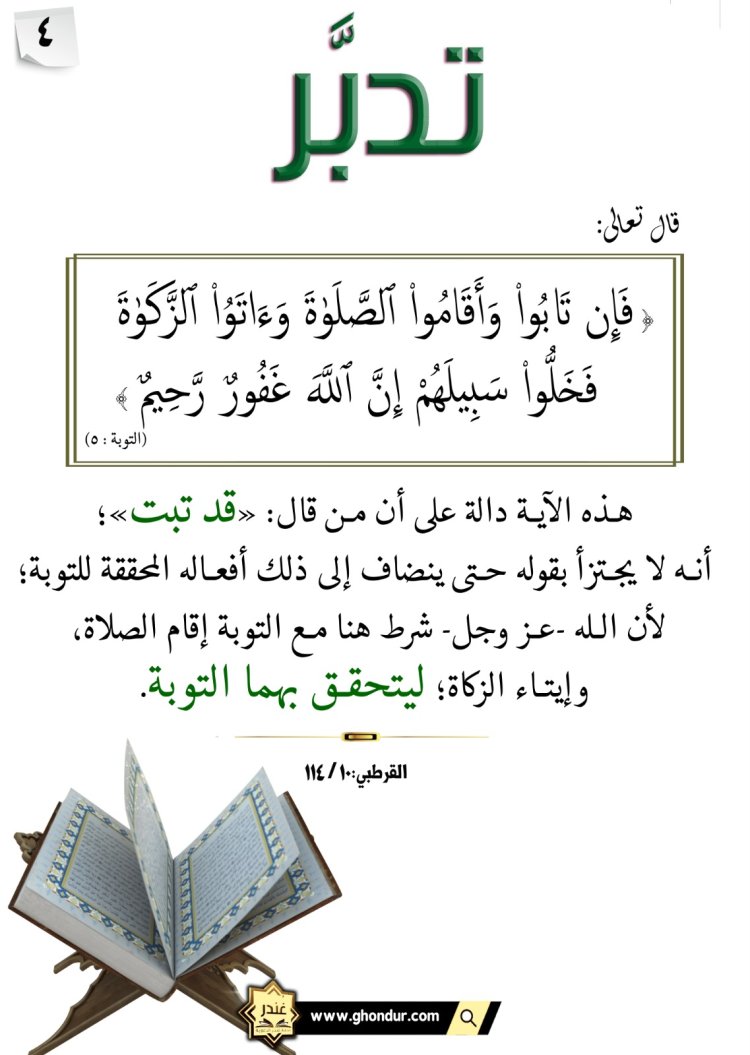 ٤
تدبَّر
قال تعالى:
﴿ فَإِن تَابُوا۟ وَأَقَامُوا۟ ٱلصَّلَوٰةَ وَءَاتَوُا۟ ٱلزَّكَوٰةَ
فَخَلُّوا۟ سَبِيلَهُمْ إِنَّ ٱللَّهَ غَفُورٌ رَّحِيمٌ ﴾
(التوبة : ٥)
هذه الآية دالة على أن من قال: «قد تبت»؛
أنه لا يجتزأ بقوله حتى ينضاف إلى ذلك أفعاله المحققة للتوبة؛
لأن الله -عز وجل- شرط هنا مع التوبة إقام الصلاة،
وإيتاء الزكاة؛ ليتحقق بهما التوبة.
القرطبي:١٠/ ١١٤
غندر
www.ghondur.com